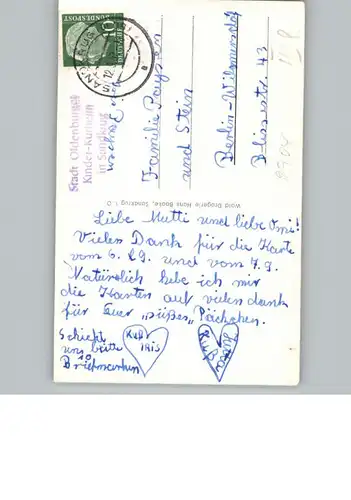 DEUTSCHE
BUNDESPOST
10
SANDKRUG
12
Stadt Oldenburger
Kinder-Kurheim
in Sandkrug
Familie Paysen
und Stein
Berlin-Wilmersdorf
Blissestr. 43
Wald Drogerie Hans Boolke, Sandkrug i. O.
Liebe Mutti und liebe Omi!
Vielen Dank für die Karte
vom 6. 19. und vom 7.9.
Natürlich hebe ich mir
die Karten auf vielen dank
für Euer „süßes" Päckchen.
Schickt
uns bitte
10
Briefmarken
KURT
IRIS